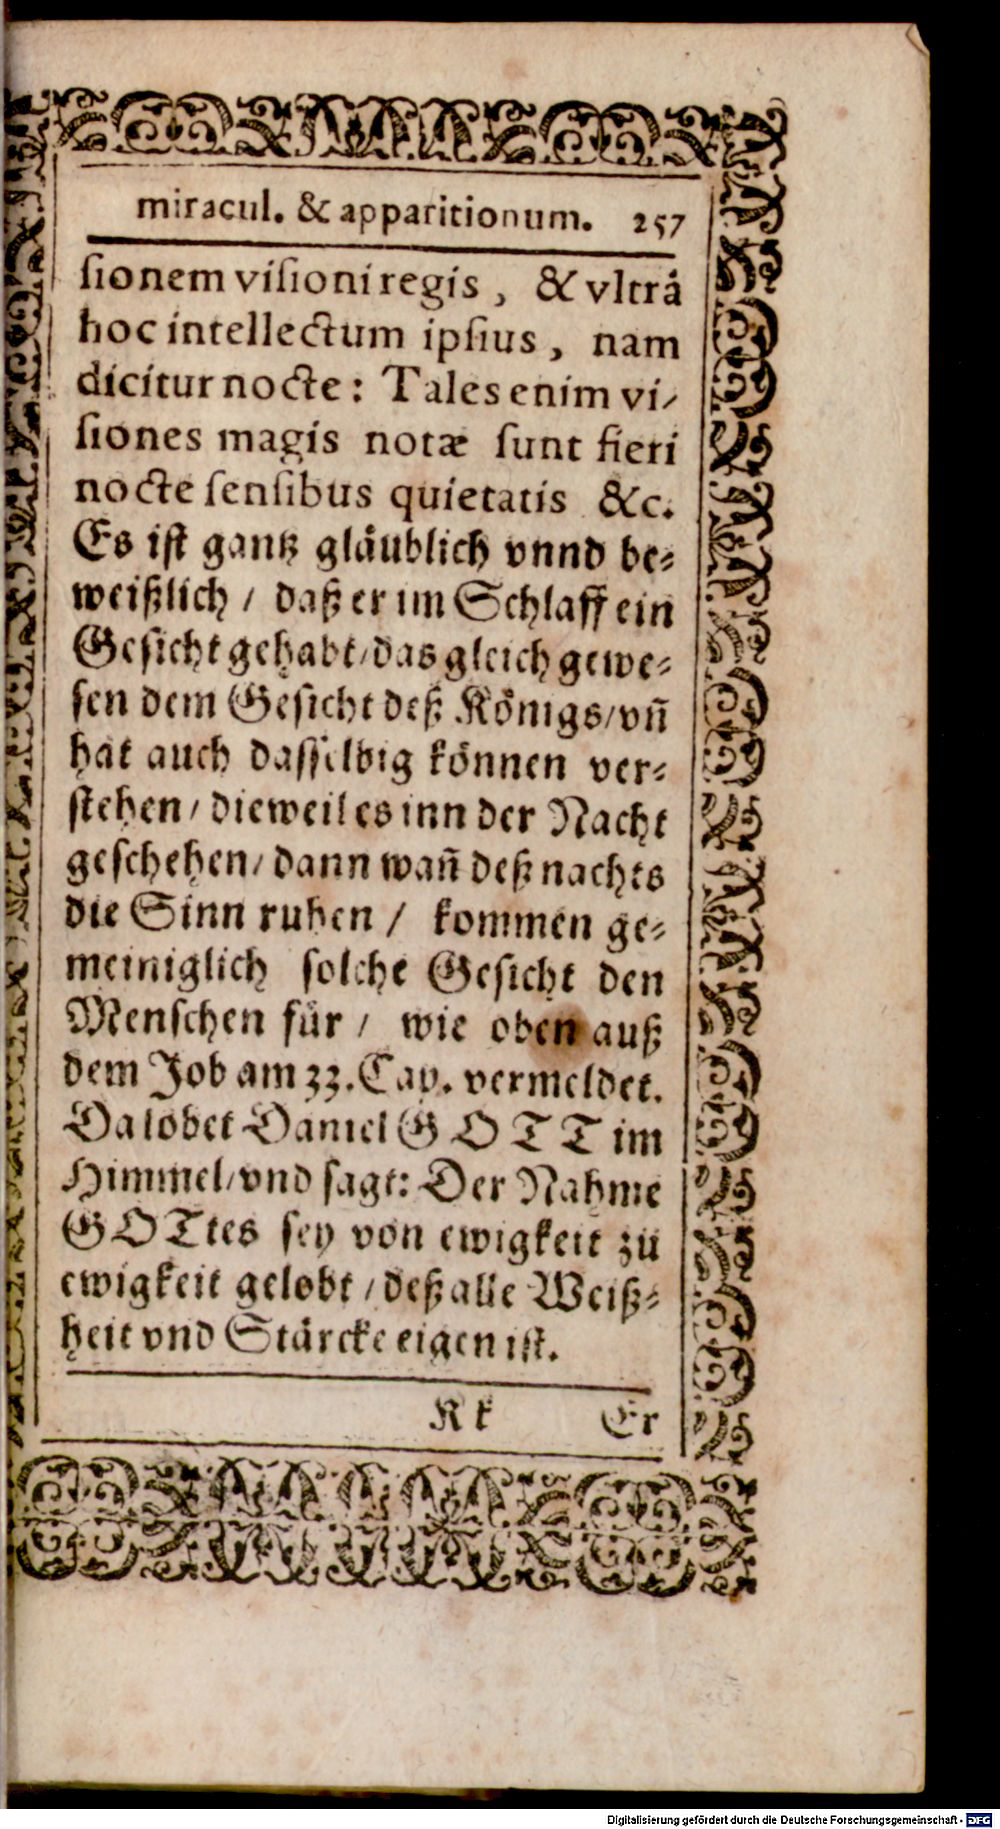 miracul. & apparitionum. 257
ſionem viſioni regis, & vltrâ
hoc intellectum ipſius, nam
dicitur nocte: Tales enim vi-
ſiones magis notæ ſunt fieri
nocte ſenſibus quietatis &c.
Es iſt gantz gläublich vnnd be-
weißlich / daß er im Schlaff ein
Geſicht gehabt / das gleich gewe-
ſen dem Geſicht deß Königs / vñ
hat auch daſſelbig können ver-
ſtehen / dieweil es inn der Nacht
geſchehen / dann wañ deß nachts
die Sinn ruhen / kommen ge-
meiniglich ſolche Geſicht den
Menſchen für / wie oben auß
dem Job am 33. Cap. vermeldet.
Da lobet Daniel GOTT im
Himmel / vnd ſagt: Der Nahme
GOTtes ſey von ewigkeit zu
ewigkeit gelobt / deß alle Weiß-
heit vnd Stärcke eigen iſt.
Kk Er
Digitalisierung gefördert durch die Deutsche Forschungsgemeinschaft - DFG